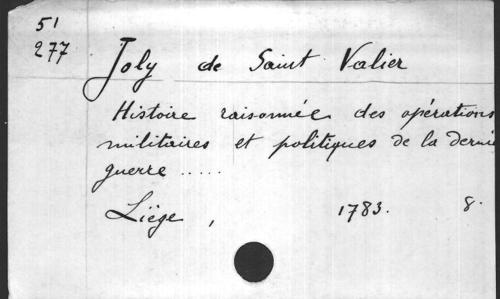 51
277
Joly de Saint Valier
Histoire raisonnée des opérations
militaires et politiques de la derniè
guerre .....
Liège, 1783. 8.